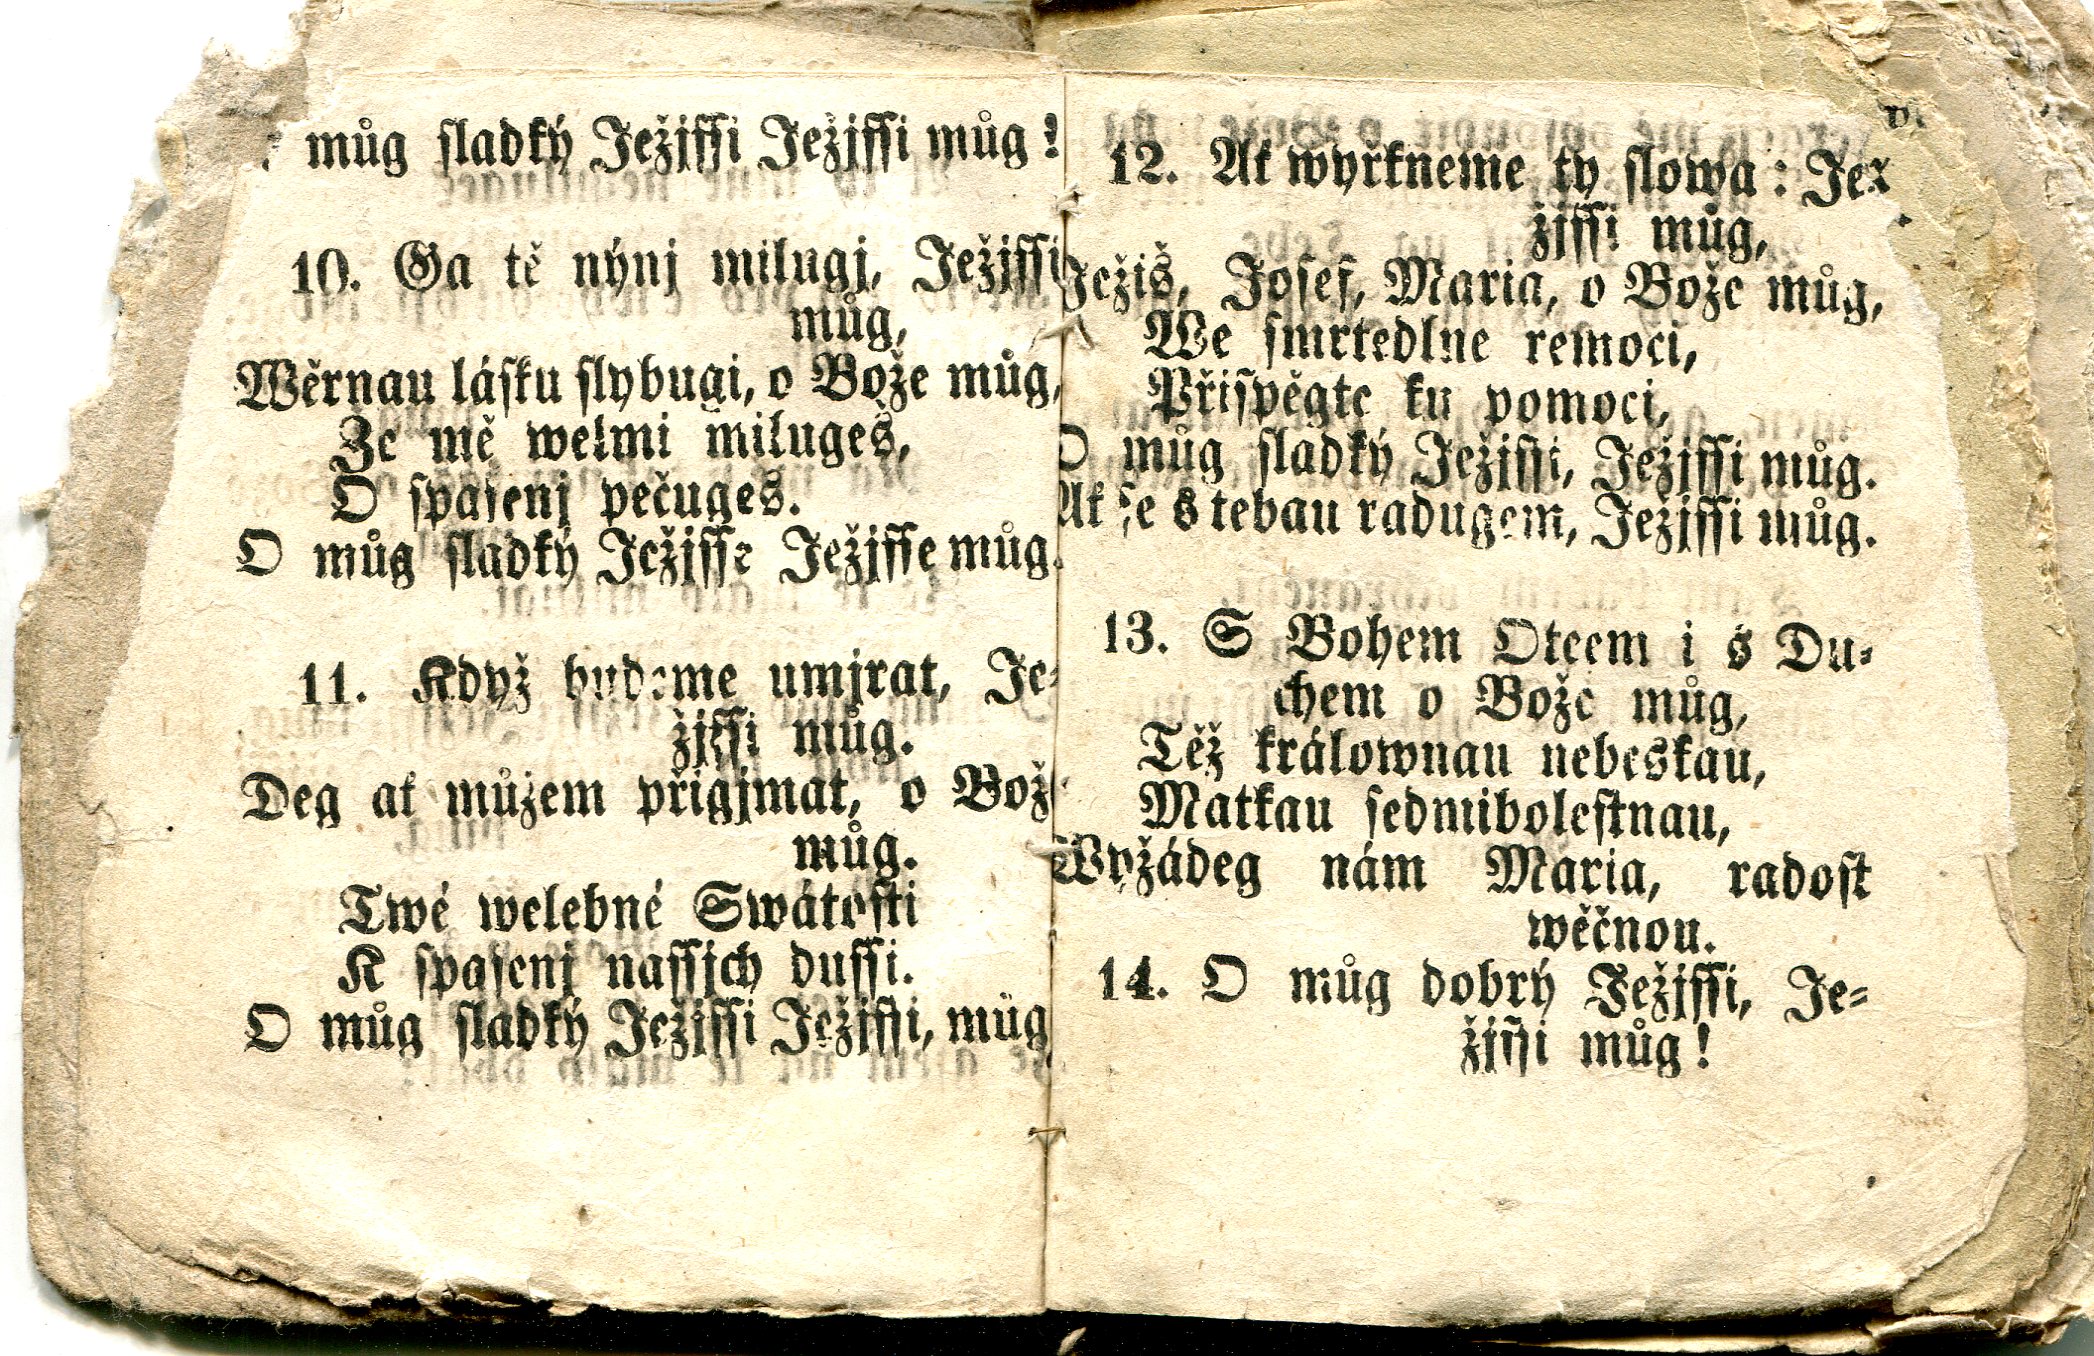 můg sladký Ježjssi Ježjssi můg!
10. Ga tě nýnj milugj, Ježjssi
můg,
Wěrnau lásku slybugi, o Bože můg,
Že mě welmi miluges̆,
O spasenj pečuges̆.
O můg sladký Ježjsse Ježjsse můg.
11. Když budeme umjrat, Je-
žjssi můg.
Deg at můžem přigjmat, o Bože
můg.
Twé welebné Swátosti
K spasenj nassjch dussi.
O můg sladký Ježjssi Ježjssi, můg
12. At wyřkneme ty slowa: Je-
žjssi můg,
Ježiš, Josef, Maria, o Bože můg,
We smrtedlne remoci,
Přispěgte ku pomoci,
O můg sladký Ježjssi, Ježjssi můg.
At se s tebau radugem, Ježjssi můg.
13. S Bohem Otcem i s Du-
chem o Bože můg,
Těž králownau nebeskau,
Matkau sedmibolestnau,
Wyžádeg nám Maria, radost
wěčnou.
14. O můg dobrý Ježjssi, Je-
žjssi můg!